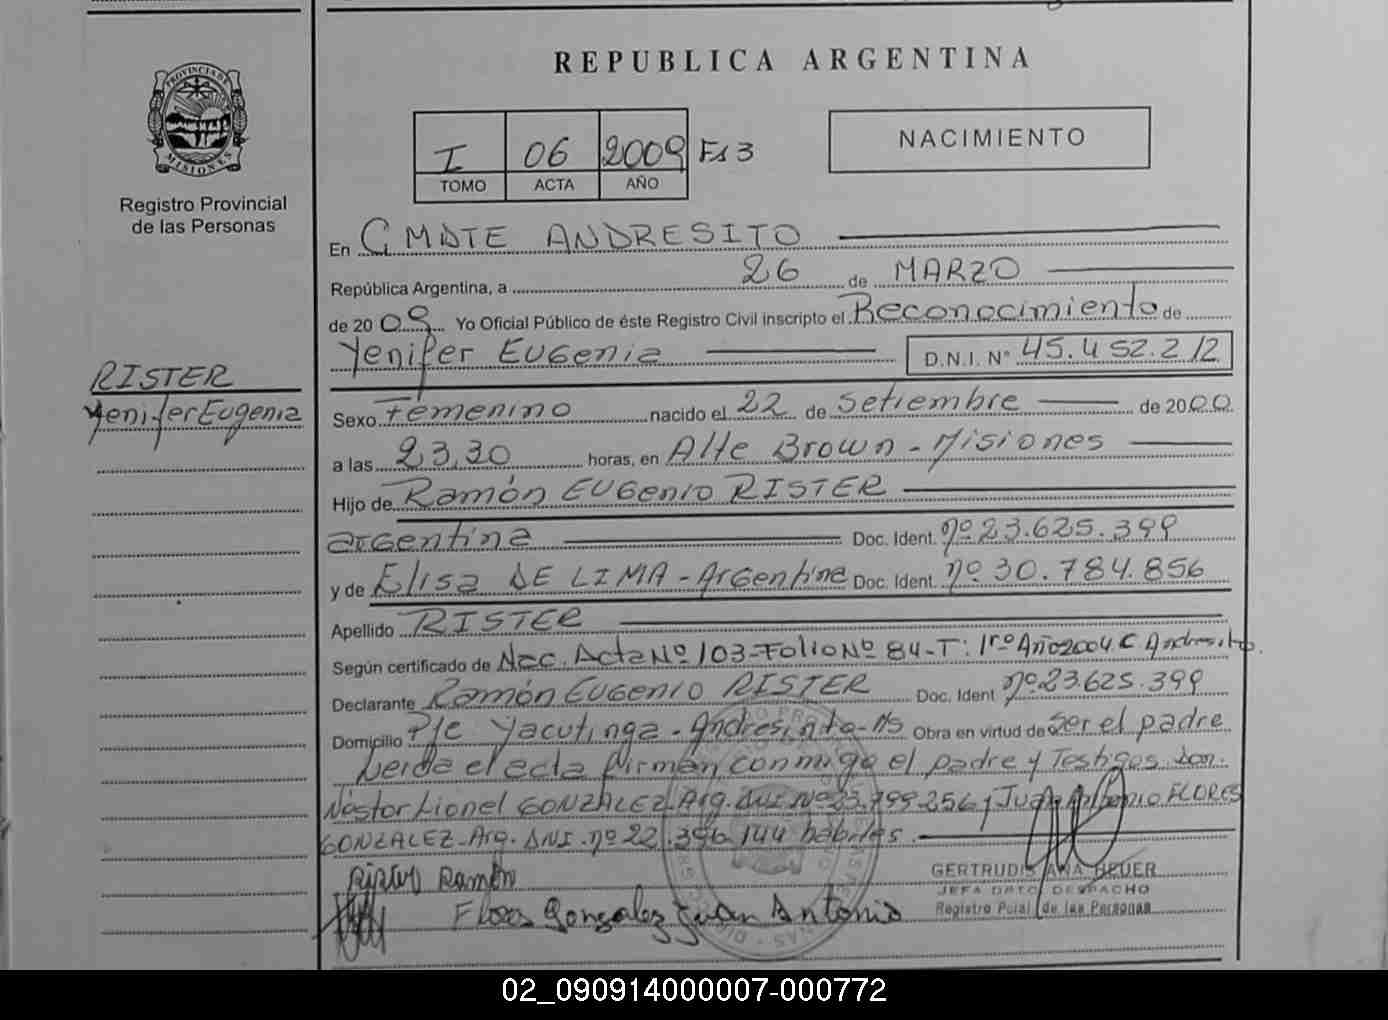 REPUBLICA ARGENTINA
PROVINCIA DE
MISIONES
Registro Provincial
de las Personas
I 06 2009 Fs 3
TOMO ACTA AÑO
NACIMIENTO
En C. MDTE ANDRESITO
República Argentina, a 26 de MARZO
de 2009 Yo Oficial Público de éste Registro Civil inscripto el Reconocimiento de
Yenifer Eugenia D.N.I. N° 45.452.212
RISTER
Yenifer Eugenia
Sexo Femenino nacido el 22 de Setiembre de 2000
a las 23,30 horas, en Alte Brown - Misiones
Hijo de Ramón Eugenio RISTER
argentina Doc. Ident. nº 23.625.399
y de Elisa DE LIMA - Argentina Doc. Ident. nº 30.784.856
Apellido RISTER
Según certificado de Nac. Acta Nº 103 - Folio Nº 84 - T: 1rº Año 2004 C. Andresito.
Declarante Ramón Eugenio RISTER Doc. Ident nº 23.625.399
Domicilio Pje Yacutinga - Andresito - Ms Obra en virtud de Ser el padre
Leida el acta firman conmigo el padre y Testigos son.
Néstor Lionel GONZALEZ - Arg. DNI Nº 23.799.256 y Juan Antonio FLORES
GONZALEZ - Arg. DNI. nº 22.396.144 hábiles.
Rister Ramón
Flores Gonzalez Juan Antonio
GERTRUDIS ANA BEUER
JEFA DPTO DESPACHO
Registro Pcial de las Personas
02_090914000007-000772